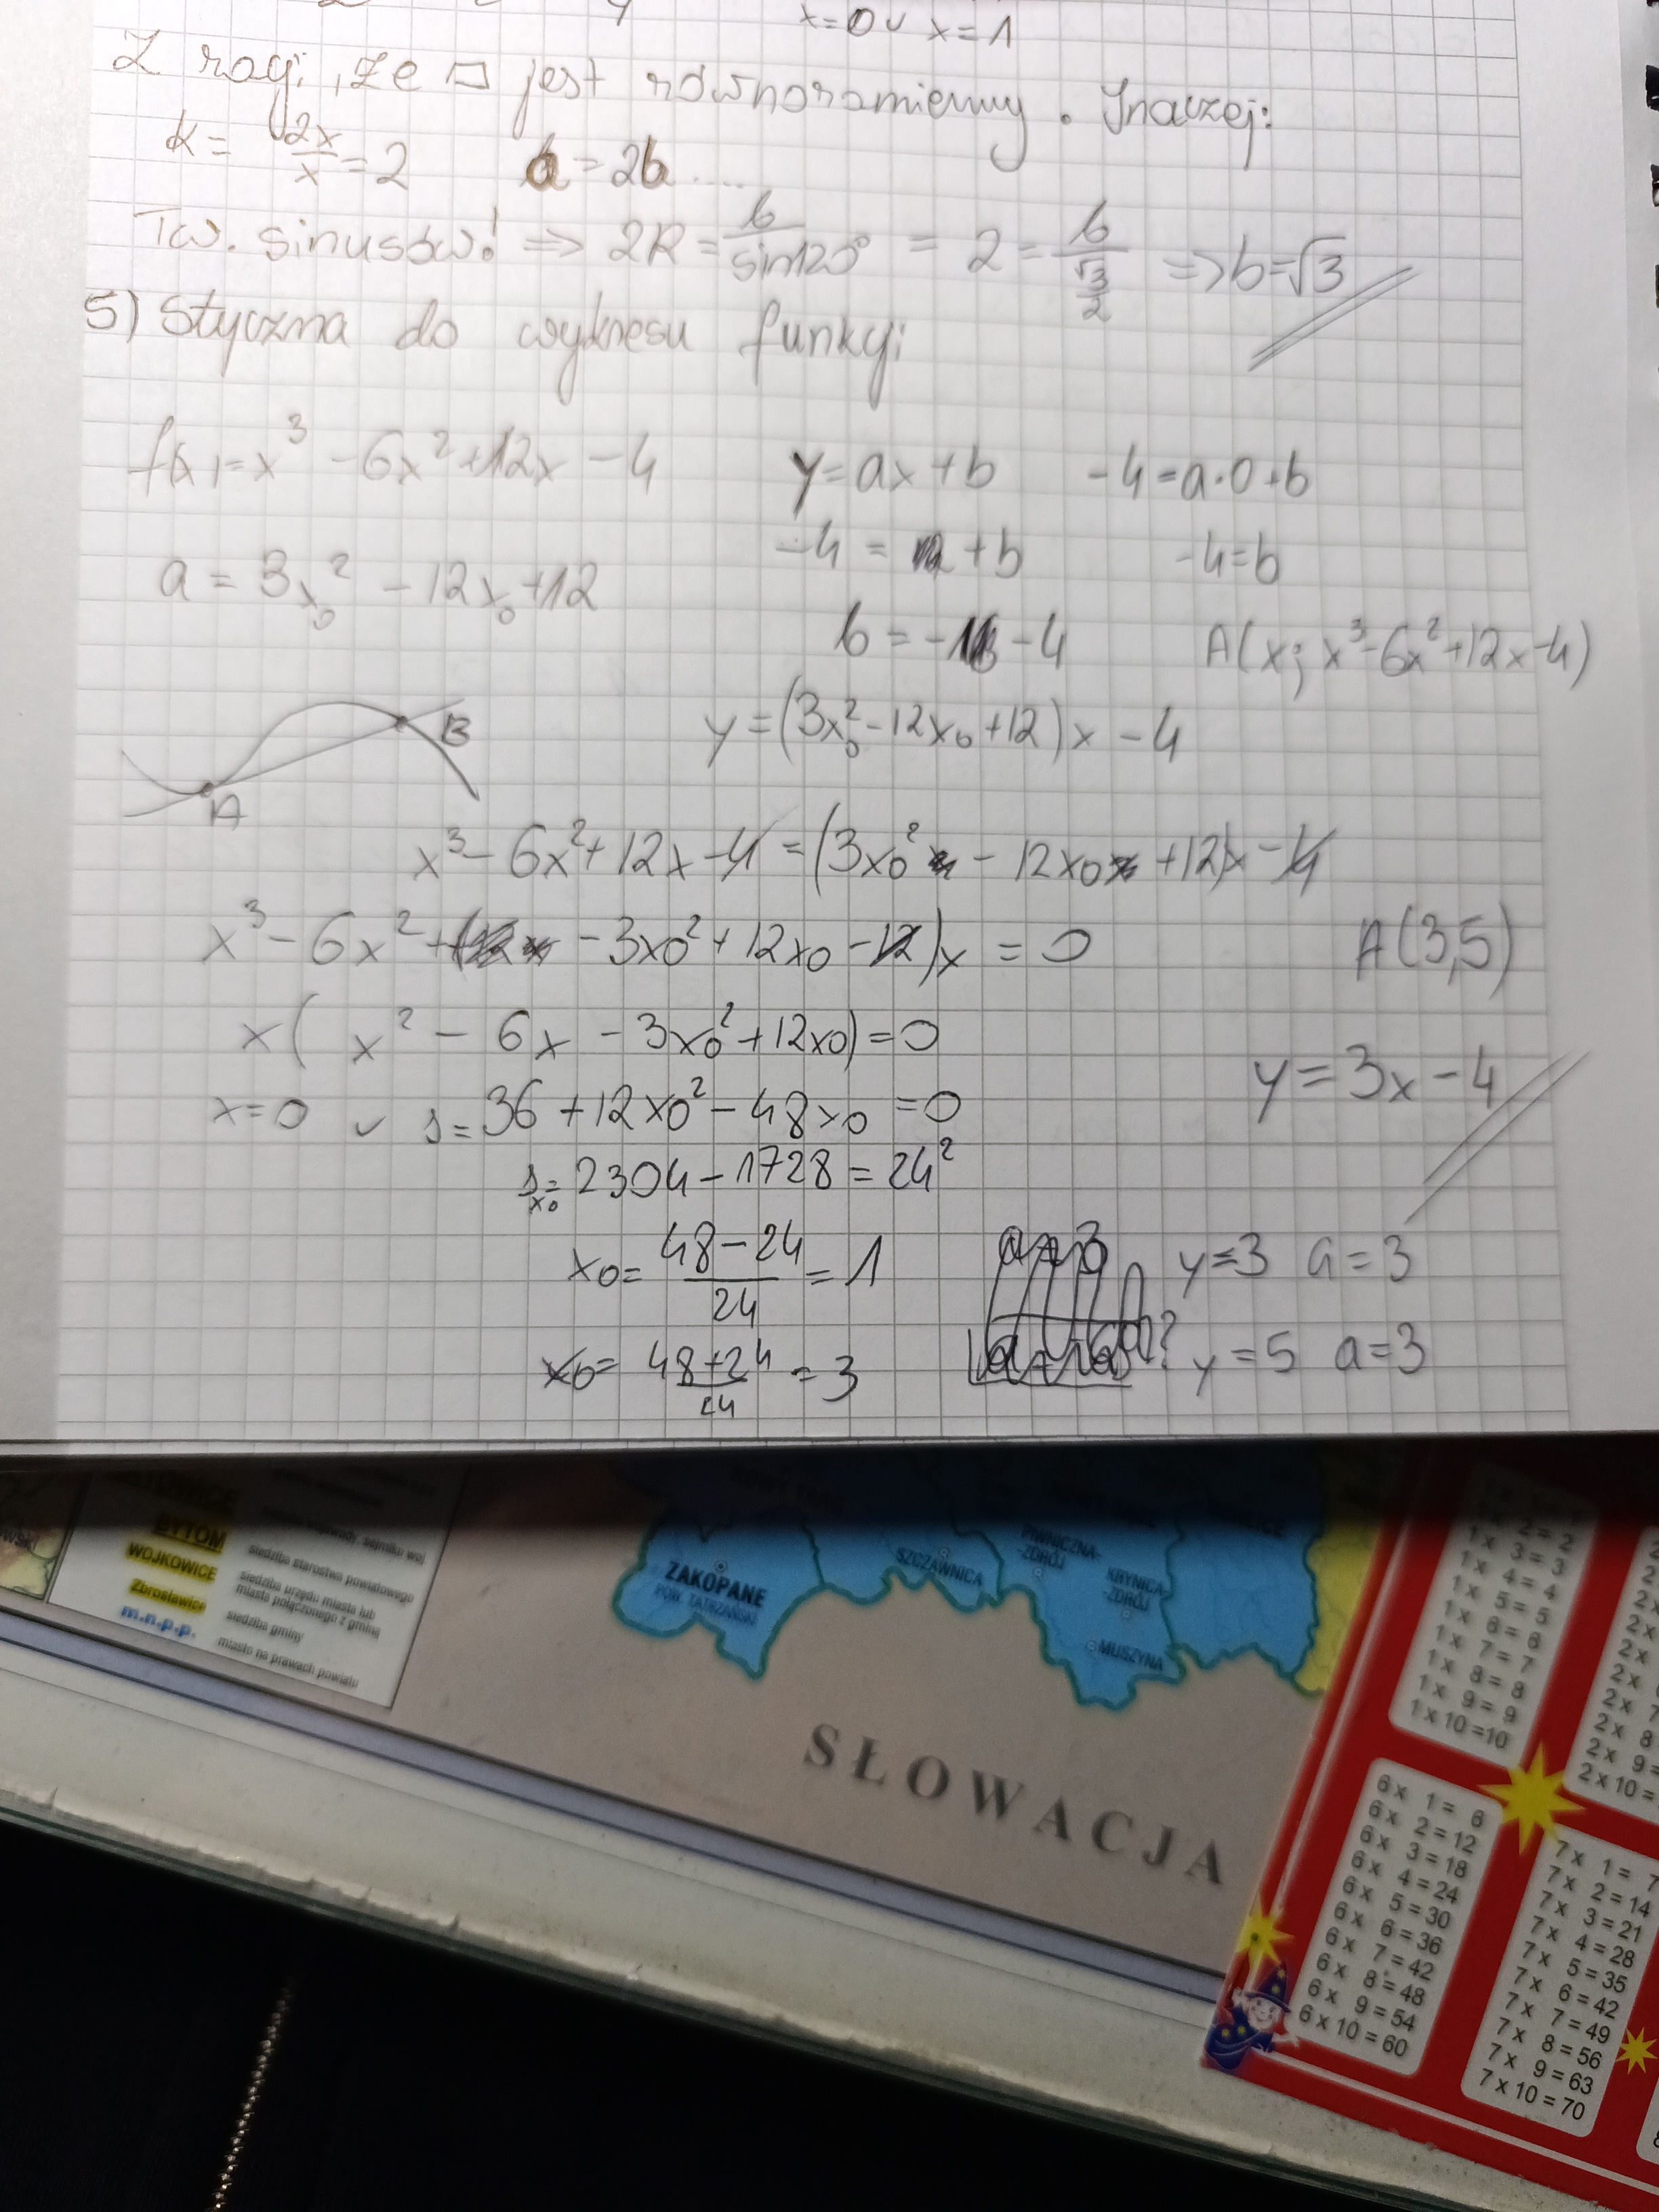 x=0 ∨ x=1
Z racji, że ▱ jest równoramienny. Inaczej:
k= 2x/x = 2   a=2b....
Tw. sinusów! => 2R = b/sin120° = 2 = b/(√3/2) => b=√3
5) Styczna do wykresu funkcji
f(x)=x³-6x²+12x-4   y=ax+b   -4=a·0+b
-4 = +b   -4=b
a = 3x₀² - 12x₀ +12
b = - -4   A(x; x³-6x²+12x-4)
y=(3x₀²-12x₀+12)x-4
B
A
x³-6x²+12x-4=(3x₀² - 12x₀ +12)x-4
x³-6x²+( -3x₀²+12x₀-12)x = 0   A(3,5)
x( x² - 6x - 3x₀²+12x₀)=0
y=3x-4
x=0 ∨ Δ=36+12x₀²-48x₀=0
Δx₀=2304-1728=24²
x₀= (48-24)/24 = 1   y=3 a=3
x₀= (48+24)/24 = 3   y=5 a=3
BYTOM
WOJKOWICE
Zbrosławice
m.n.p.p.
siedziba starostwa powiatowego
siedziba urzędu miasta lub
miasta połączonego z gminą
siedziba gminy
miasto na prawach powiatu
ZAKOPANE
POW. TATRZAŃSKI
SZCZAWNICA
PIWNICZNA-
-ZDRÓJ
KRYNICA-
-ZDRÓJ
MUSZYNA
SŁOWACJA
1 x 2 = 2
1 x 3 = 3
1 x 4 = 4
1 x 5 = 5
1 x 6 = 6
1 x 7 = 7
1 x 8 = 8
1 x 9 = 9
1 x 10 =10
2 x 7
2 x 8
2 x 9 =
2 x 10 =
6 x 1 = 6
6 x 2 = 12
6 x 3 = 18
6 x 4 = 24
6 x 5 = 30
6 x 6 = 36
6 x 7 = 42
6 x 8 = 48
6 x 9 = 54
6 x 10 = 60
7 x 1 = 7
7 x 2 = 14
7 x 3 = 21
7 x 4 = 28
7 x 5 = 35
7 x 6 = 42
7 x 7 = 49
7 x 8 = 56
7 x 9 = 63
7 x 10 = 70